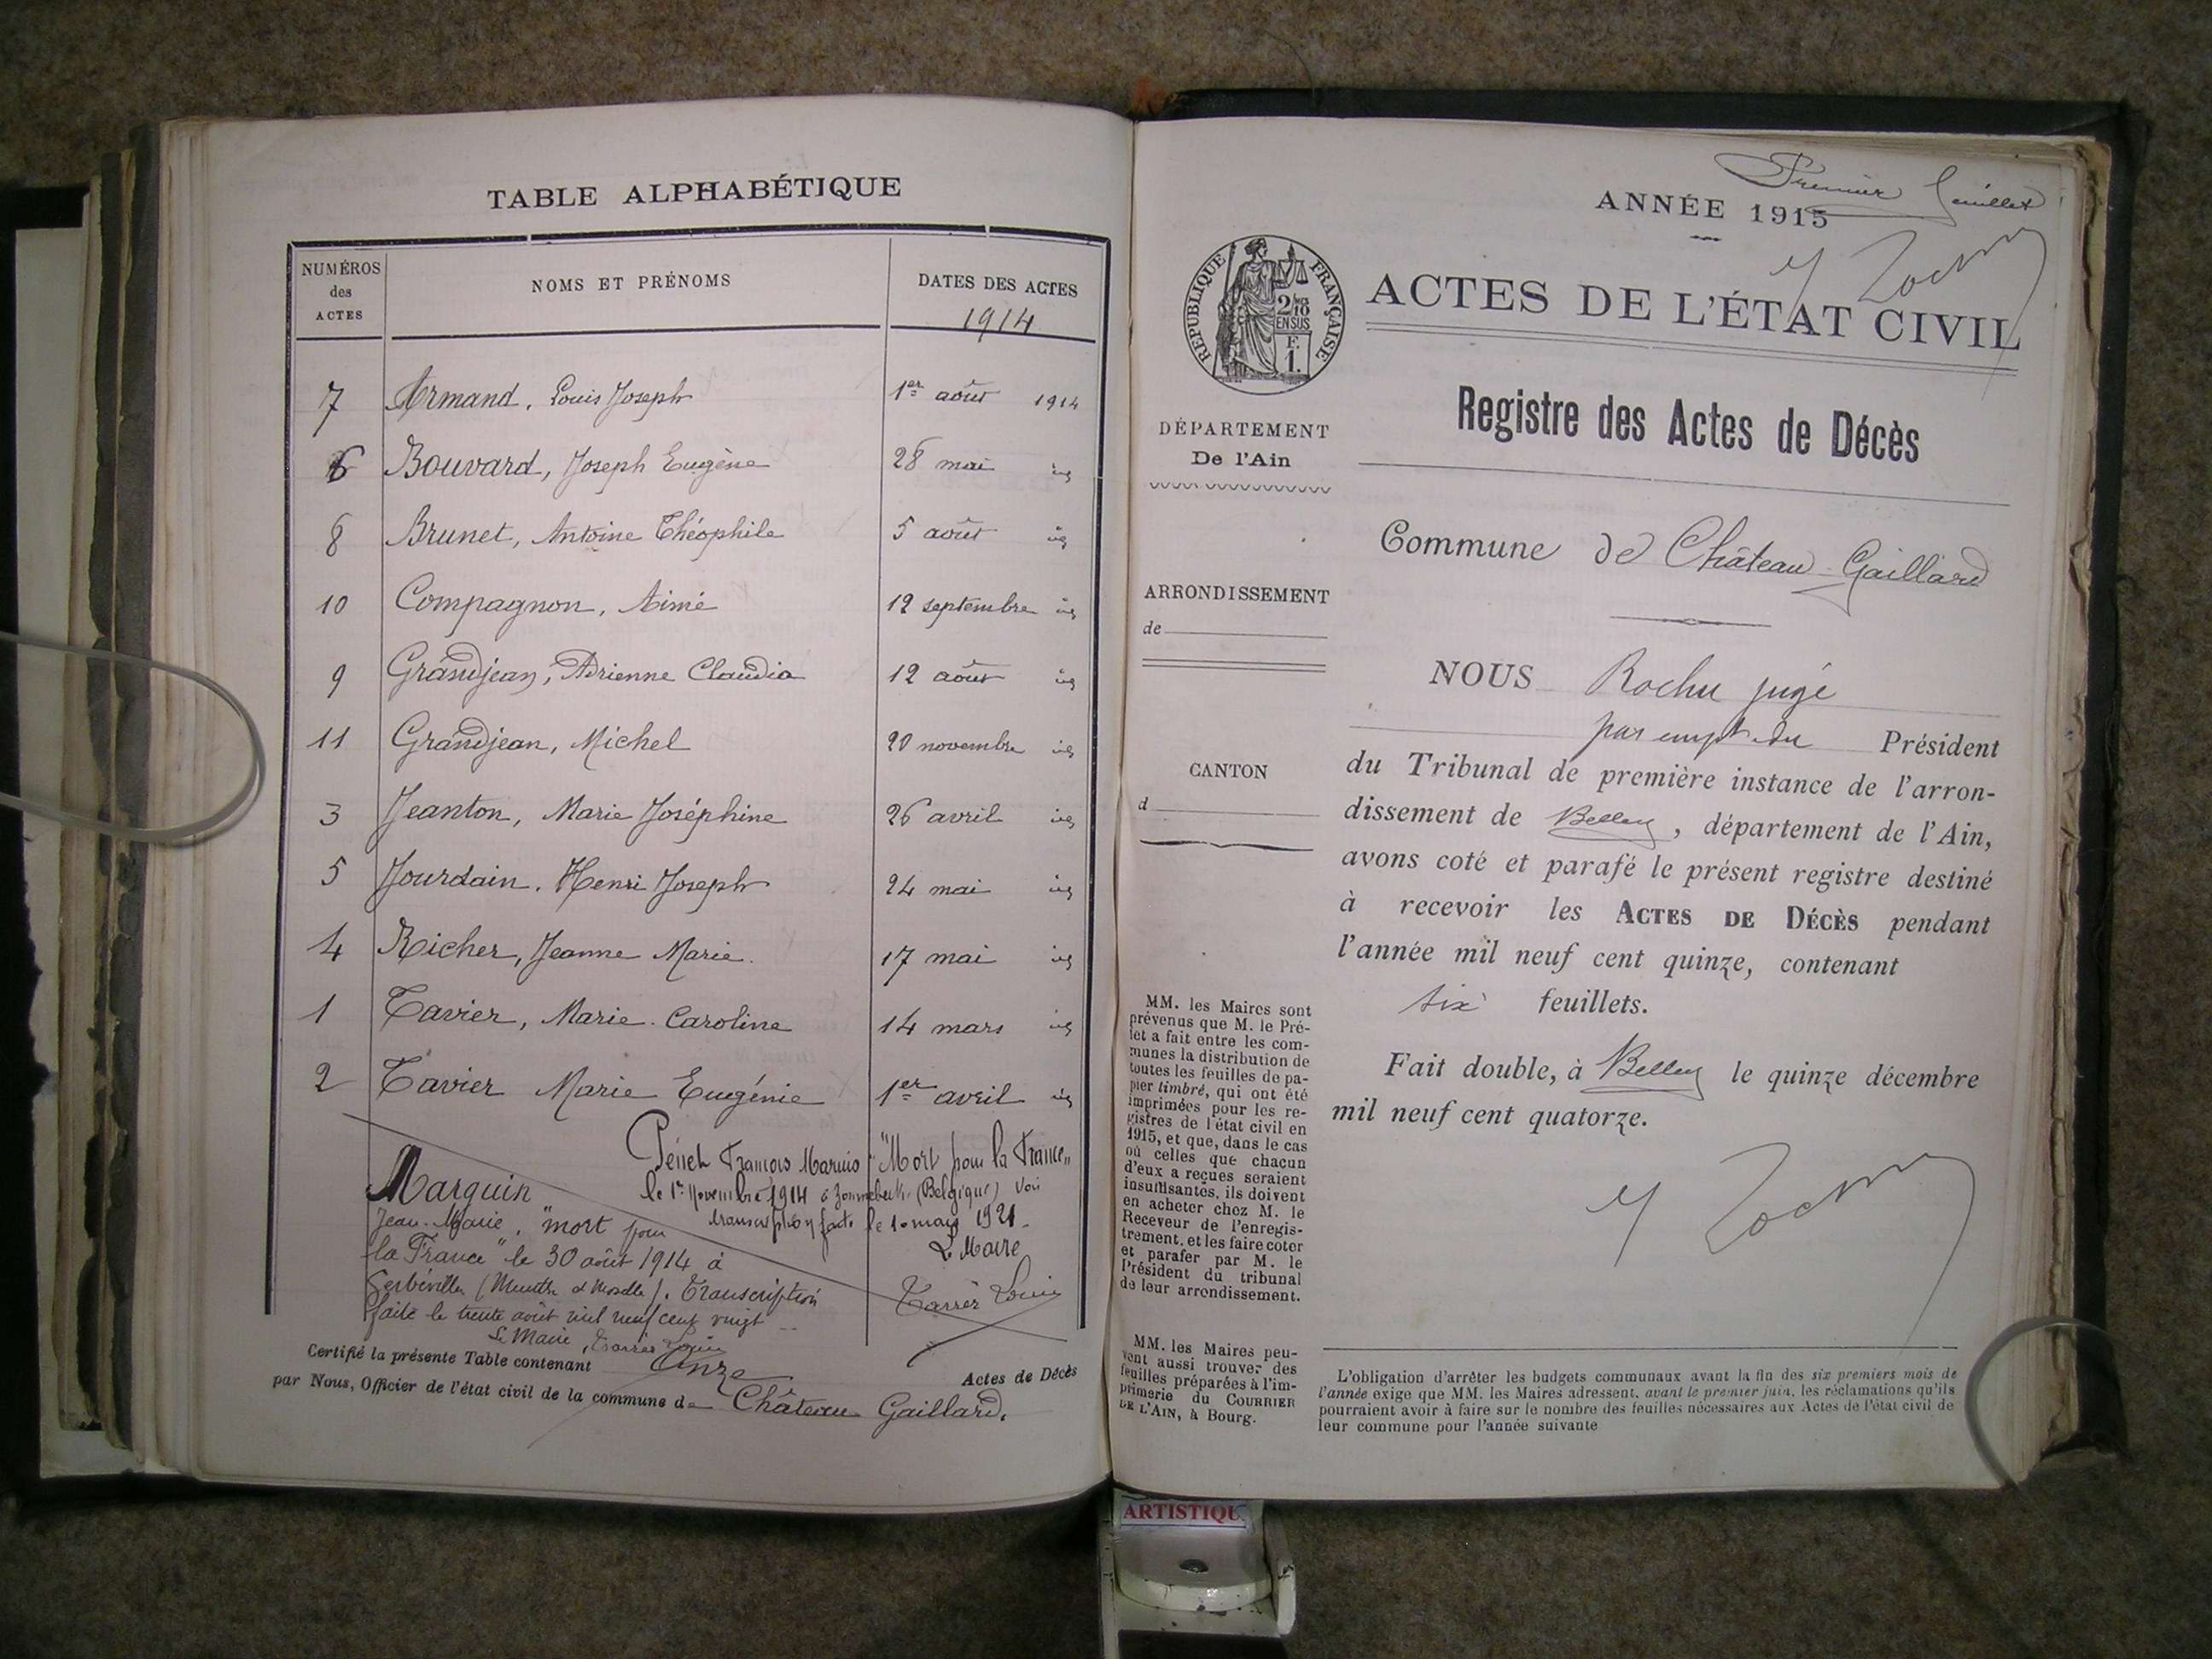 TABLE ALPHABÉTIQUE
NUMÉROS des ACTES
NOMS ET PRÉNOMS
DATES DES ACTES
1914
7 Armand, Louis Joseph 1er août 1914
6 Bouvard, Joseph Eugène 28 mai id
8 Brunet, Antoine Théophile 5 août id
10 Compagnon, Aimé 12 septembre id
9 Grandjean, Adrienne Claudia 12 août id
11 Grandjean, Michel 20 novembre id
3 Jeanton, Marie Joséphine 26 avril id
5 Jourdain, Henri Joseph 24 mai id
4 Richer, Jeanne Marie. 17 mai id
1 Tavier, Marie Caroline 14 mars id
2 Tavier Marie Eugénie 1er avril id
François Marius "Mort pour la France"
le 1er Novembre 1914 à (Belgique) Voir
transcription faite le 10 mars 1921.
Le Maire
Marquin
Jean-Marie, "mort pour
la France" le 30 août 1914 à
Gerbéviller (Meurthe et Moselle). Transcription
faite le trente août mil neuf cent vingt
Le Maire,
Certifié la présente Table contenant Onze Actes de Décès
par Nous, Officier de l'état civil de la commune de Château Gaillard.
Premier feuillet
ANNÉE 1915
RÉPUBLIQUE FRANÇAISE
2/10
EN SUS
F.
1.
ACTES DE L'ÉTAT CIVIL
Registre des Actes de Décès
DÉPARTEMENT
De l'Ain
Commune de Château-Gaillard
ARRONDISSEMENT
de
CANTON
d
NOUS Rochu juge
par empt du Président
du Tribunal de première instance de l'arron-
dissement de Belley, département de l'Ain,
avons coté et parafé le présent registre destiné
à recevoir les ACTES DE DÉCÈS pendant
l'année mil neuf cent quinze, contenant
six feuillets.
Fait double, à Belley le quinze décembre
mil neuf cent quatorze.
MM. les Maires sont
prévenus que M. le Pré-
fet a fait entre les com-
munes la distribution de
toutes les feuilles de pa-
pier timbré, qui ont été
imprimées pour les re-
gistres de l'état civil en
1915, et que, dans le cas
où celles que chacun
d'eux a reçues seraient
insuffisantes, ils doivent
en acheter chez M. le
Receveur de l'enregis-
trement, et les faire coter
et parafer par M. le
Président du tribunal
de leur arrondissement.
MM. les Maires peu-
vent aussi trouver des
feuilles préparées à l'im-
primerie du COURRIER
DE L'AIN, à Bourg.
L'obligation d'arrêter les budgets communaux avant la fin des six premiers mois de
l'année exige que MM. les Maires adressent, avant le premier juin, les réclamations qu'ils
pourraient avoir à faire sur le nombre des feuilles nécessaires aux Actes de l'état civil de
leur commune pour l'année suivante
ARTISTIQU